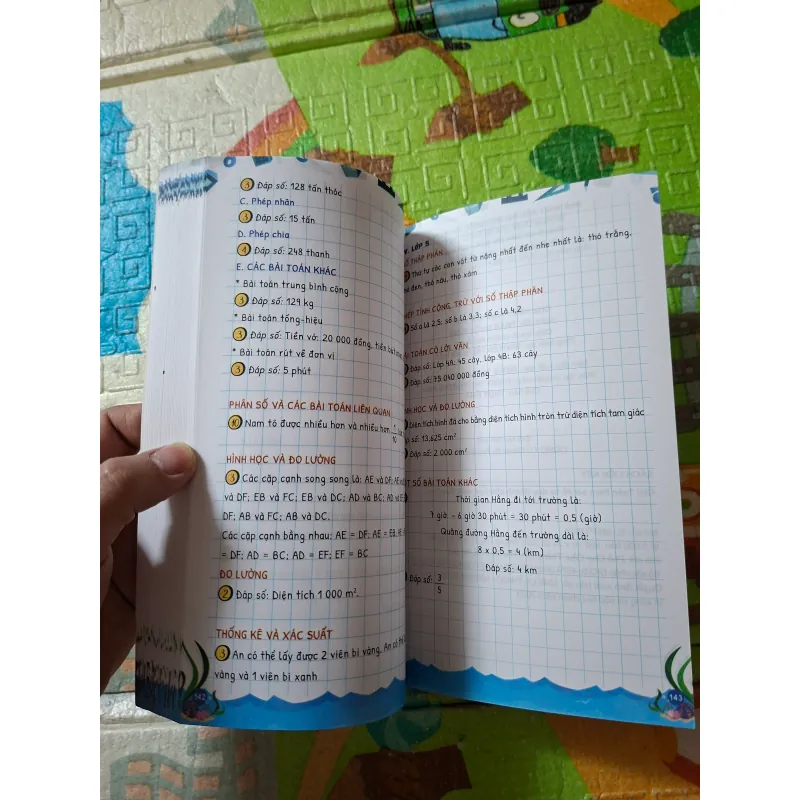 3 Đáp số: 128 tấn thóc
C. Phép nhân
3 Đáp số: 15 tấn
D. Phép chia
1 Đáp số: 248 thanh
E. CÁC BÀI TOÁN KHÁC
* Bài toán trung bình cộng
3 Đáp số: 129 kg
* Bài toán tổng-hiệu
3 Đáp số: Tiền vở: 20 000 đồng, tiền bút
* Bài toán rút về đơn vị
3 Đáp số: 5 phút
PHÂN SỐ VÀ CÁC BÀI TOÁN LIÊN QUAN
10 Nam tô được nhiều hơn và nhiều hơn 1/10
HÌNH HỌC VÀ ĐO LƯỜNG
3 Các cặp cạnh song song là: AE và DF; AE
và DF; EB và FC; EB và DC; AD và BC; AD và EF;
DF; AB và FC; AB và DC.
Các cặp cạnh bằng nhau: AE = DF; AE = EB;
= DF; AD = BC; AD = EF; EF = BC
ĐO LƯỜNG
2 Đáp số: Diện tích 1 000 m².
THỐNG KÊ VÀ XÁC SUẤT
3 An có thể lấy được 2 viên bi vàng, An có thể
vàng và 1 viên bi xanh
142
LỚP 5
THẬP PHÂN
Thứ tự các con vật từ nặng nhất đến nhẹ nhất là: thỏ trắng,
đen, thỏ nâu, thỏ xám
PHÉP TÍNH CỘNG, TRỪ VỚI SỐ THẬP PHÂN
Số a là 2,5; số b là 3,3; số c là 4,2
TOÁN CÓ LỜI VĂN
Đáp số: Lớp 4A: 45 cây, Lớp 4B: 63 cây
Đáp số: 75 040 000 đồng
HỌC VÀ ĐO LƯỜNG
Diện tích hình đã cho bằng diện tích hình tròn trừ diện tích tam giác
số: 13,625 cm²
Đáp số: 2 000 cm²
SỐ BÀI TOÁN KHÁC
Thời gian Hằng đi tới trường là:
7 giờ - 6 giờ 30 phút = 30 phút = 0,5 (giờ)
Quãng đường Hằng đến trường dài là:
8 x 0,5 = 4 (km)
Đáp số: 4 km
Đáp số: 3/5
143